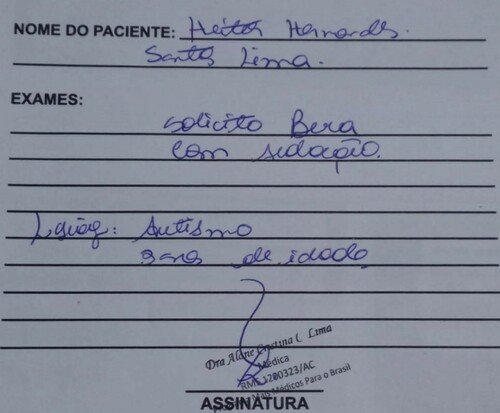 NOME DO PACIENTE: Heitor Hernandes.
Santos Lima.
EXAMES:
solicito Bera
com sedação.
Autismo
3 anos de idade
Dra Alane Cristina C. Lima
Médica
RMS 1200323/AC
Mais Médicos Para o Brasil
ASSINATURA